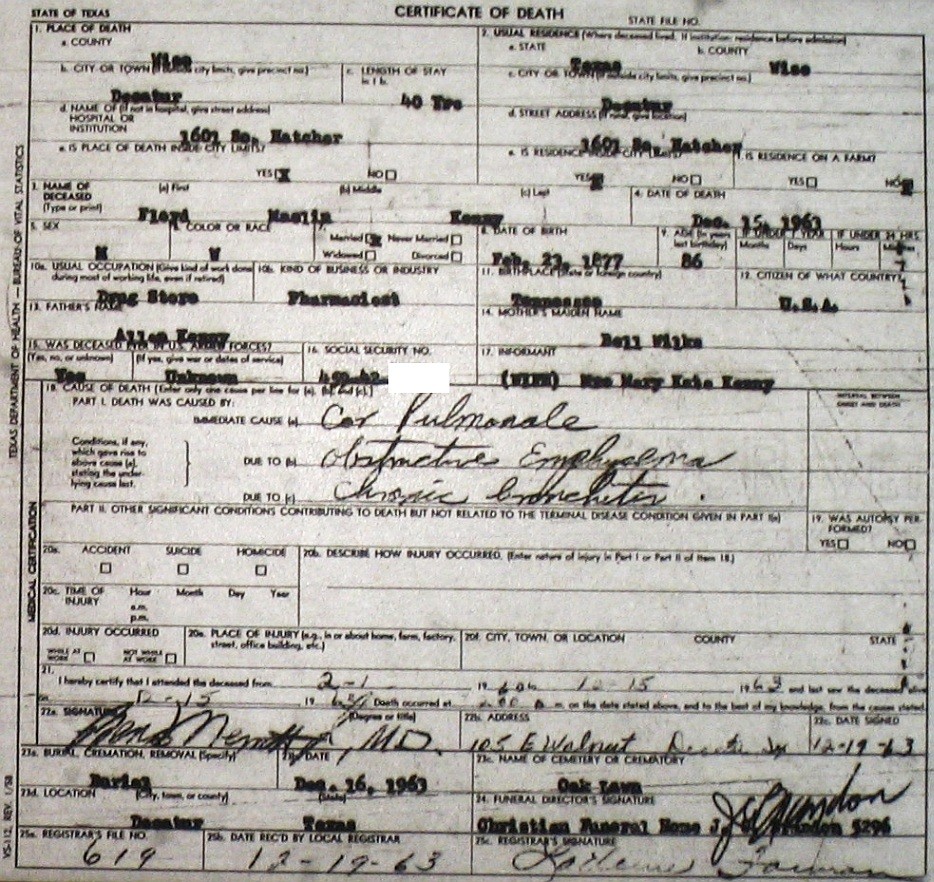 STATE OF TEXAS CERTIFICATE OF DEATH STATE FILE NO.
1. PLACE OF DEATH
a. COUNTY
Wise
2. USUAL RESIDENCE (Where deceased lived. If institution: residence before admission)
a. STATE b. COUNTY
Texas Wise
b. CITY OR TOWN (If outside city limits, give precinct no.)
Decatur
c. LENGTH OF STAY in 1 b.
40 Yrs
c. CITY OR TOWN (If outside city limits, give precinct no.)
Decatur
d. NAME OF (If not in hospital, give street address)
HOSPITAL OR
INSTITUTION
1601 So. Hatcher
d. STREET ADDRESS (If rural, give location)
1601 So. Hatcher
e. IS PLACE OF DEATH INSIDE CITY LIMITS?
YES X NO
e. IS RESIDENCE INSIDE CITY LIMITS?
YES X NO
f. IS RESIDENCE ON A FARM?
YES NO X
3. NAME OF DECEASED
(Type or print)
(a) First (b) Middle (c) Last
Floyd Maslin Kenny
4. DATE OF DEATH
Dec. 15, 1963
5. SEX
M
6. COLOR OR RACE
W
7.
Married X Never Married
Widowed Divorced
8. DATE OF BIRTH
Feb. 23, 1877
9. AGE (In years last birthday)
86
IF UNDER 1 YEAR
Months Days
IF UNDER 24 HRS.
Hours
10a. USUAL OCCUPATION (Give kind of work done during most of working life, even if retired)
Drug Store
10b. KIND OF BUSINESS OR INDUSTRY
Pharmacist
11. BIRTHPLACE (State or foreign country)
Tennessee
12. CITIZEN OF WHAT COUNTRY?
U.S.A.
13. FATHER'S NAME
Allen Kenny
14. MOTHER'S MAIDEN NAME
Bell Wilks
15. WAS DECEASED EVER IN U.S. ARMED FORCES?
(Yes, no, or unknown) (If yes, give war or dates of service)
Yes Unknown
16. SOCIAL SECURITY NO.
17. INFORMANT
(WIFE) Mrs Mary Kate Kenny
18. CAUSE OF DEATH [Enter only one cause per line for (a), (b), and (c).]
INTERVAL BETWEEN ONSET AND DEATH
PART I. DEATH WAS CAUSED BY:
IMMEDIATE CAUSE (a) Cor Pulmonale
Conditions, if any, which gave rise to above cause (a), stating the underlying cause last.
DUE TO (b) Obstructive Emphysema
DUE TO (c) Chronic bronchitis.
PART II. OTHER SIGNIFICANT CONDITIONS CONTRIBUTING TO DEATH BUT NOT RELATED TO THE TERMINAL DISEASE CONDITION GIVEN IN PART I(a)
19. WAS AUTOPSY PERFORMED?
YES NO
20a. ACCIDENT SUICIDE HOMICIDE
20b. DESCRIBE HOW INJURY OCCURRED. (Enter nature of injury in Part I or Part II of Item 18.)
20c. TIME OF INJURY
Hour Month Day Year
a.m.
p.m.
20d. INJURY OCCURRED
WHILE AT WORK NOT WHILE AT WORK
20e. PLACE OF INJURY (e.g., in or about home, farm, factory, street, office building, etc.)
20f. CITY, TOWN, OR LOCATION COUNTY STATE
21.
I hereby certify that I attended the deceased from 2-1 19 60 to 12-15 1963 and last saw the deceased alive
on 12-15 19 63 Death occurred at m on the date stated above, and to the best of my knowledge, from the causes stated.
22a. SIGNATURE (Degree or title)
M.D.
22b. ADDRESS
105 E Walnut Decatur Tx
22c. DATE SIGNED
12-19-63
23a. BURIAL, CREMATION, REMOVAL (Specify)
Burial
23b. DATE
Dec. 16, 1963
23c. NAME OF CEMETERY OR CREMATORY
Oak Lawn
23d. LOCATION (City, town, or county) (State)
Decatur Texas
24. FUNERAL DIRECTOR'S SIGNATURE
Christian Funeral Home J. Brandon 5296
25a. REGISTRAR'S FILE NO.
619
25b. DATE REC'D BY LOCAL REGISTRAR
12-19-63
25c. REGISTRAR'S SIGNATURE
TEXAS DEPARTMENT OF HEALTH — BUREAU OF VITAL STATISTICS
MEDICAL CERTIFICATION
VS-112, REV. 1/58